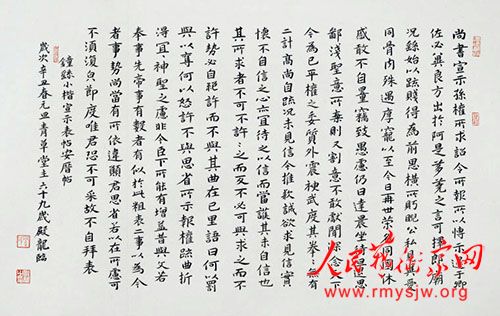 尚書宣示孫權所求詔令所報所以博示逮于卿
佐必冀良方出於阿是芻蕘之言可擇郎廟
況繇始以疏賤得為前恩橫所盱睨公私見異愛
同骨肉殊遇厚寵以至今日再世榮名同國休
慼敢不自量竊致愚慮仍日達晨坐以待旦退思
鄙淺聖意所棄則又割意不敢獻聞深念天下
今為已平權之委質外震神武度其拳〻無有
二計高尚自疏況未見信今推款誠欲求見信實
懷不自信之心亦宜待之以信而當護其未自信也
其所求者不可不許〻之而反不必可與求之而不
許勢必自絕許而不與其曲在己里語曰何以罰
與以奪何以怒許不與思省所示報權疏曲折
得宜宜神聖之慮非今臣下所能有增益昔與文若
奉事先帝事有數者有似於此粗表二事以為今
者事勢尚當有所依違願君思省若以在所慮可
不須復貌節度唯君恐不可采故不自拜表
鍾繇小楷宣示表帖
歲次辛丑春元青草堂主六十九歲殿龍臨
人民艺术家网
www.rmysjw.org